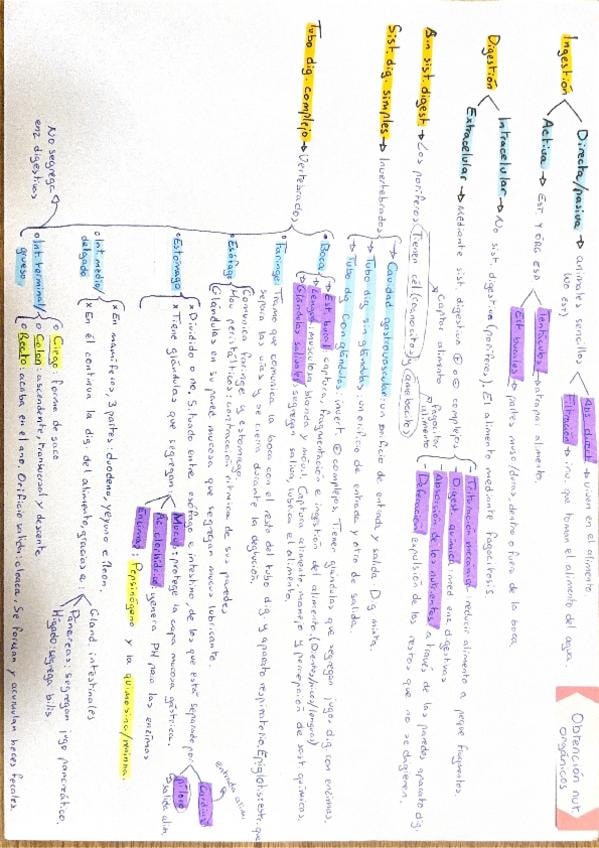 Obtención nut. orgánicos
Ingestión
Directa/pasiva → animales sencillos (No est)
Abs. direct → viven en el alimento
Filtración → inv. que toman el alimento del agua.
Activa → Est. y órg esp
Tentáculos → atrapar alimento.
Est. bucales → partes musc/duras, dentro o fuera de la boca
Digestión
Intracelular → No sist. digestivo (poríferos). El alimento mediante fagocitosis
Extracelular → Mediante sist. digestivo ⊕ o ⊖ complejo
- Trituración mecánica: reducir alimento a peque fragmentos.
- Digest. química: med enz digestivas
- Absorción de los nutrientes: a través de las paredes aparato dig.
- Defecación: expulsión de los restos que no se digieren.
Sin sist. digest → Los poríferos (Tienen cél (coanocitos) y (amebocito)
captar alimento
fagocitar alimento
Sist. dig. simples → Invertebrados
→ Cavidad gastrovascular: un orificio de entrada y salida. Dig mixta.
→ Tubo dig sin glándulas: un orificio de entrada y otro de salida.
→ Tubo dig con glándulas: invert. ⊕ complejos. Tienen glándulas que segregan jugos dig. con enzimas.
Tubo dig. complejo → Vertebrados
Boca
Est. bucal: captura, fragmentación e ingestión del alimento. (Dientes/pico/lengua)
Lengua: musculosa blanda y móvil. Captura alimento, manejo y percepción de sust. químicas.
Glándulas salivales: segregan saliva, lubrica el alimento.
Faringe: Tramo que comunica la boca con el resto del tubo dig. y aparato respiratorio. Epiglotis: estr. que
separa las vías y se cierra durante la deglución.
Esófago
Comunica faringe y estómago
Mov. peristálticos: contracción rítmica de sus paredes
Glándulas en su pared mucosa que segregan mucus lubricante.
Estómago
× Dividido o no. Situado entre esófago e intestino, de los que está separado por
Cardias
entrada alim
Píloro
salida alim
× Tiene glándulas que segregan
Mucus: protege la capa mucosa gástrica.
Ác. clorhídrico: genera PH para las enzimas
Enzimas: Pepsinógeno y la quimosina/renina.
Int. medio/ delgado
× En mamíferos, 3 partes: duodeno, yeyuno e íleon.
× En él continua la dig. del alimento, gracias a:
Gland. intestinales
Páncreas: segregan jugo pancreático.
Hígado: segrega bilis
Int. terminal/ grueso
No segrega enz digestivas
Ciego: forma de saco
Colon: ascendente, transversal y descente
Recto: acaba en el ano. Orificio salida: cloaca. Se forman y acumulan heces fecales.